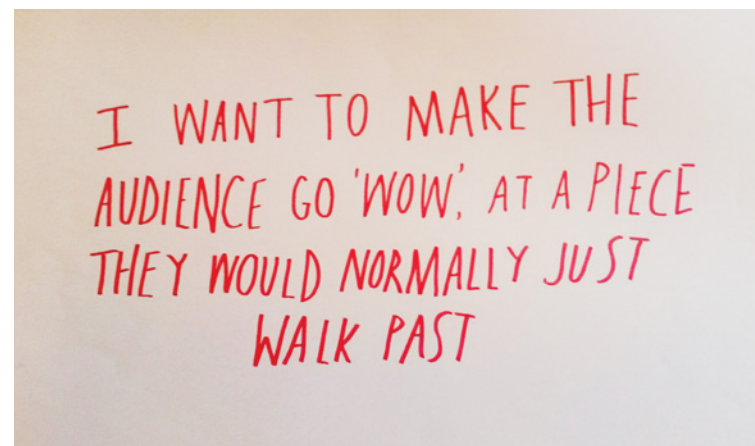 I WANT TO MAKE THE
AUDIENCE GO 'WOW', AT A PIECE
THEY WOULD NORMALLY JUST
WALK PAST